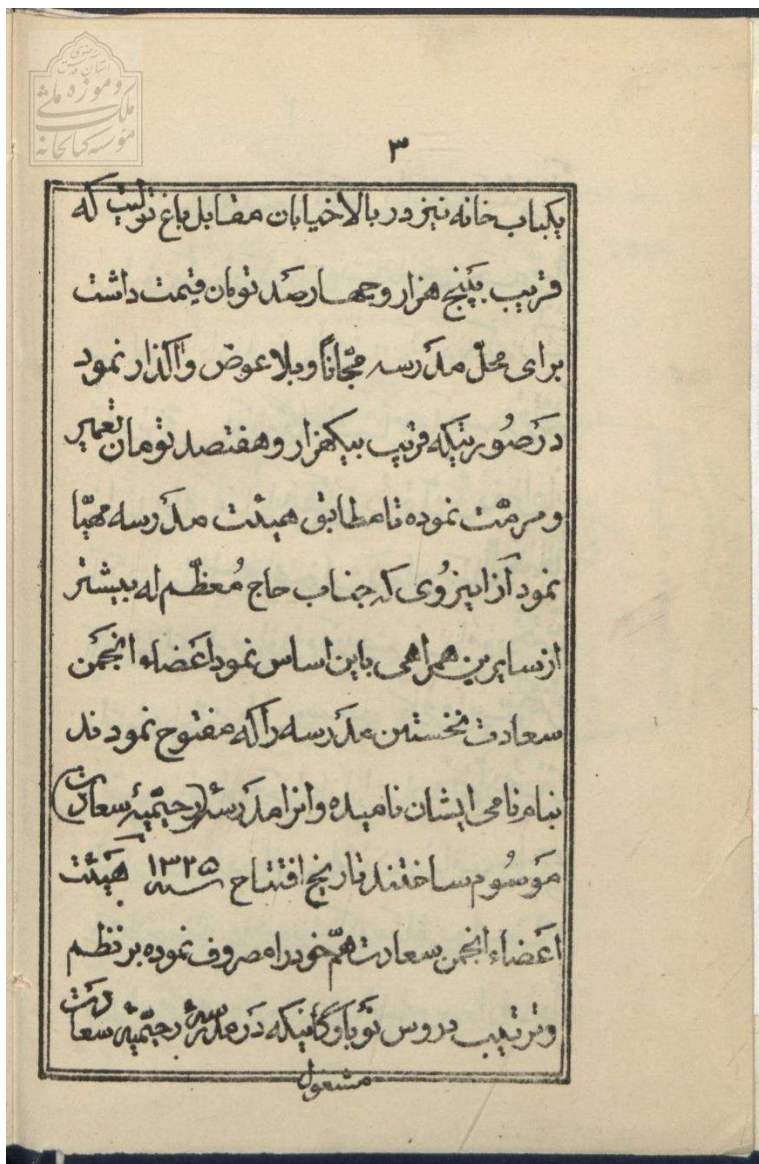 ۳
یکباب خانه نیز در بالاخیابان مقابل باغ تولیت که
قریب بپنج هزار و چهارصد تومان قیمت داشت
برای محلّ مدرسه مجّاناً و بلاعوض واگذار نمود
درصورتیکه قریب بیکهزار و هفتصد تومان تعمیر
و مرمّت نموده تا مطابق هیئت مدرسه مهیّا
نمود ازاینرُوی که جناب حاج مُعظّم له بیشتر
از سایرین همراهی باین اساس نمود اعضاء انجمن
سعادت نخستین مدرسه را که مفتوح نمودند
بنام نامی ایشان نامیده و انرا مدرسهٔ (رحیمیّهٔ سعادت)
موسُوم ساختند تاریخ افتتاح سنه ۱۳۲۵ هیئت
اعضاء انجمن سعادت همّ خود را مصروف نموده بر نظم
و ترتیب دروس نوباوگانیکه در مدرسهٔ رحیمیّهٔ سعادت
مشغول
موسسه کتابخانه
و موزه ملی
ملک
آستان قدس رضوی